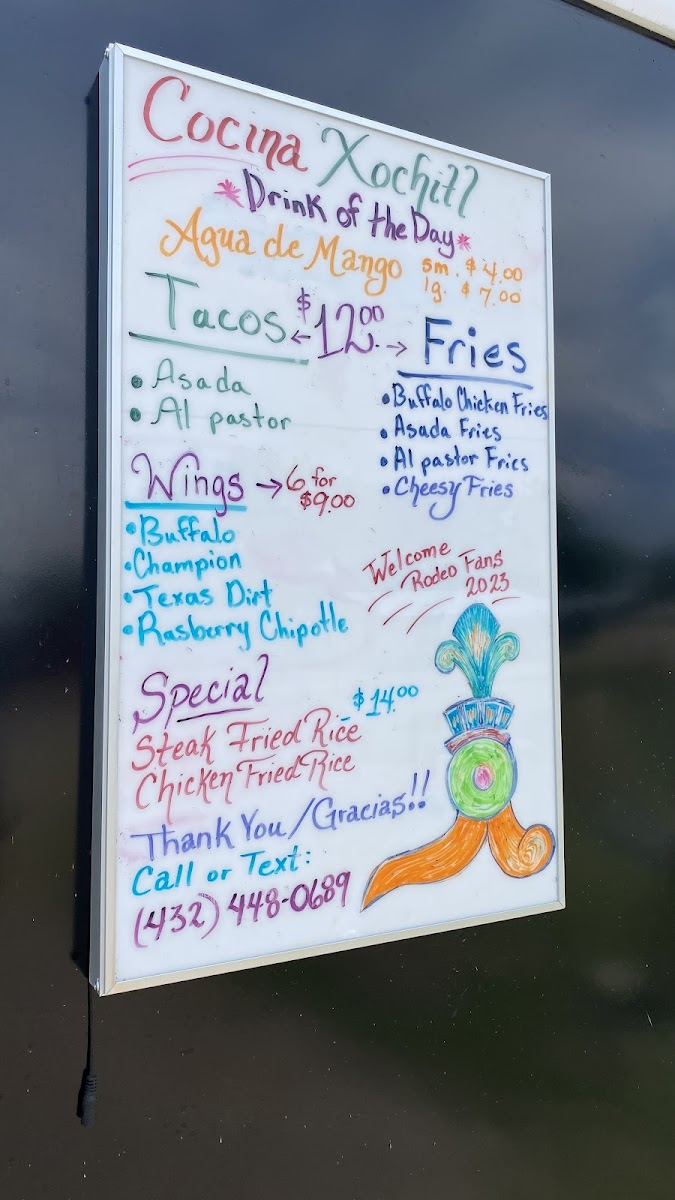 Cocina Xochitl
*Drink of the Day*
Agua de Mango sm. $4.00
lg. $7.00
Tacos ← $12.00 → Fries
• Asada
• Al pastor
• Buffalo Chicken Fries
• Asada Fries
• Al pastor Fries
• Cheesy Fries
Wings → 6 for
$9.00
• Buffalo
• Champion
• Texas Dirt
• Rasberry Chipotle
Welcome
Rodeo Fans
2023
Special $14.00
Steak Fried Rice
Chicken Fried Rice
Thank You/Gracias!!
Call or Text:
(432) 448-0689